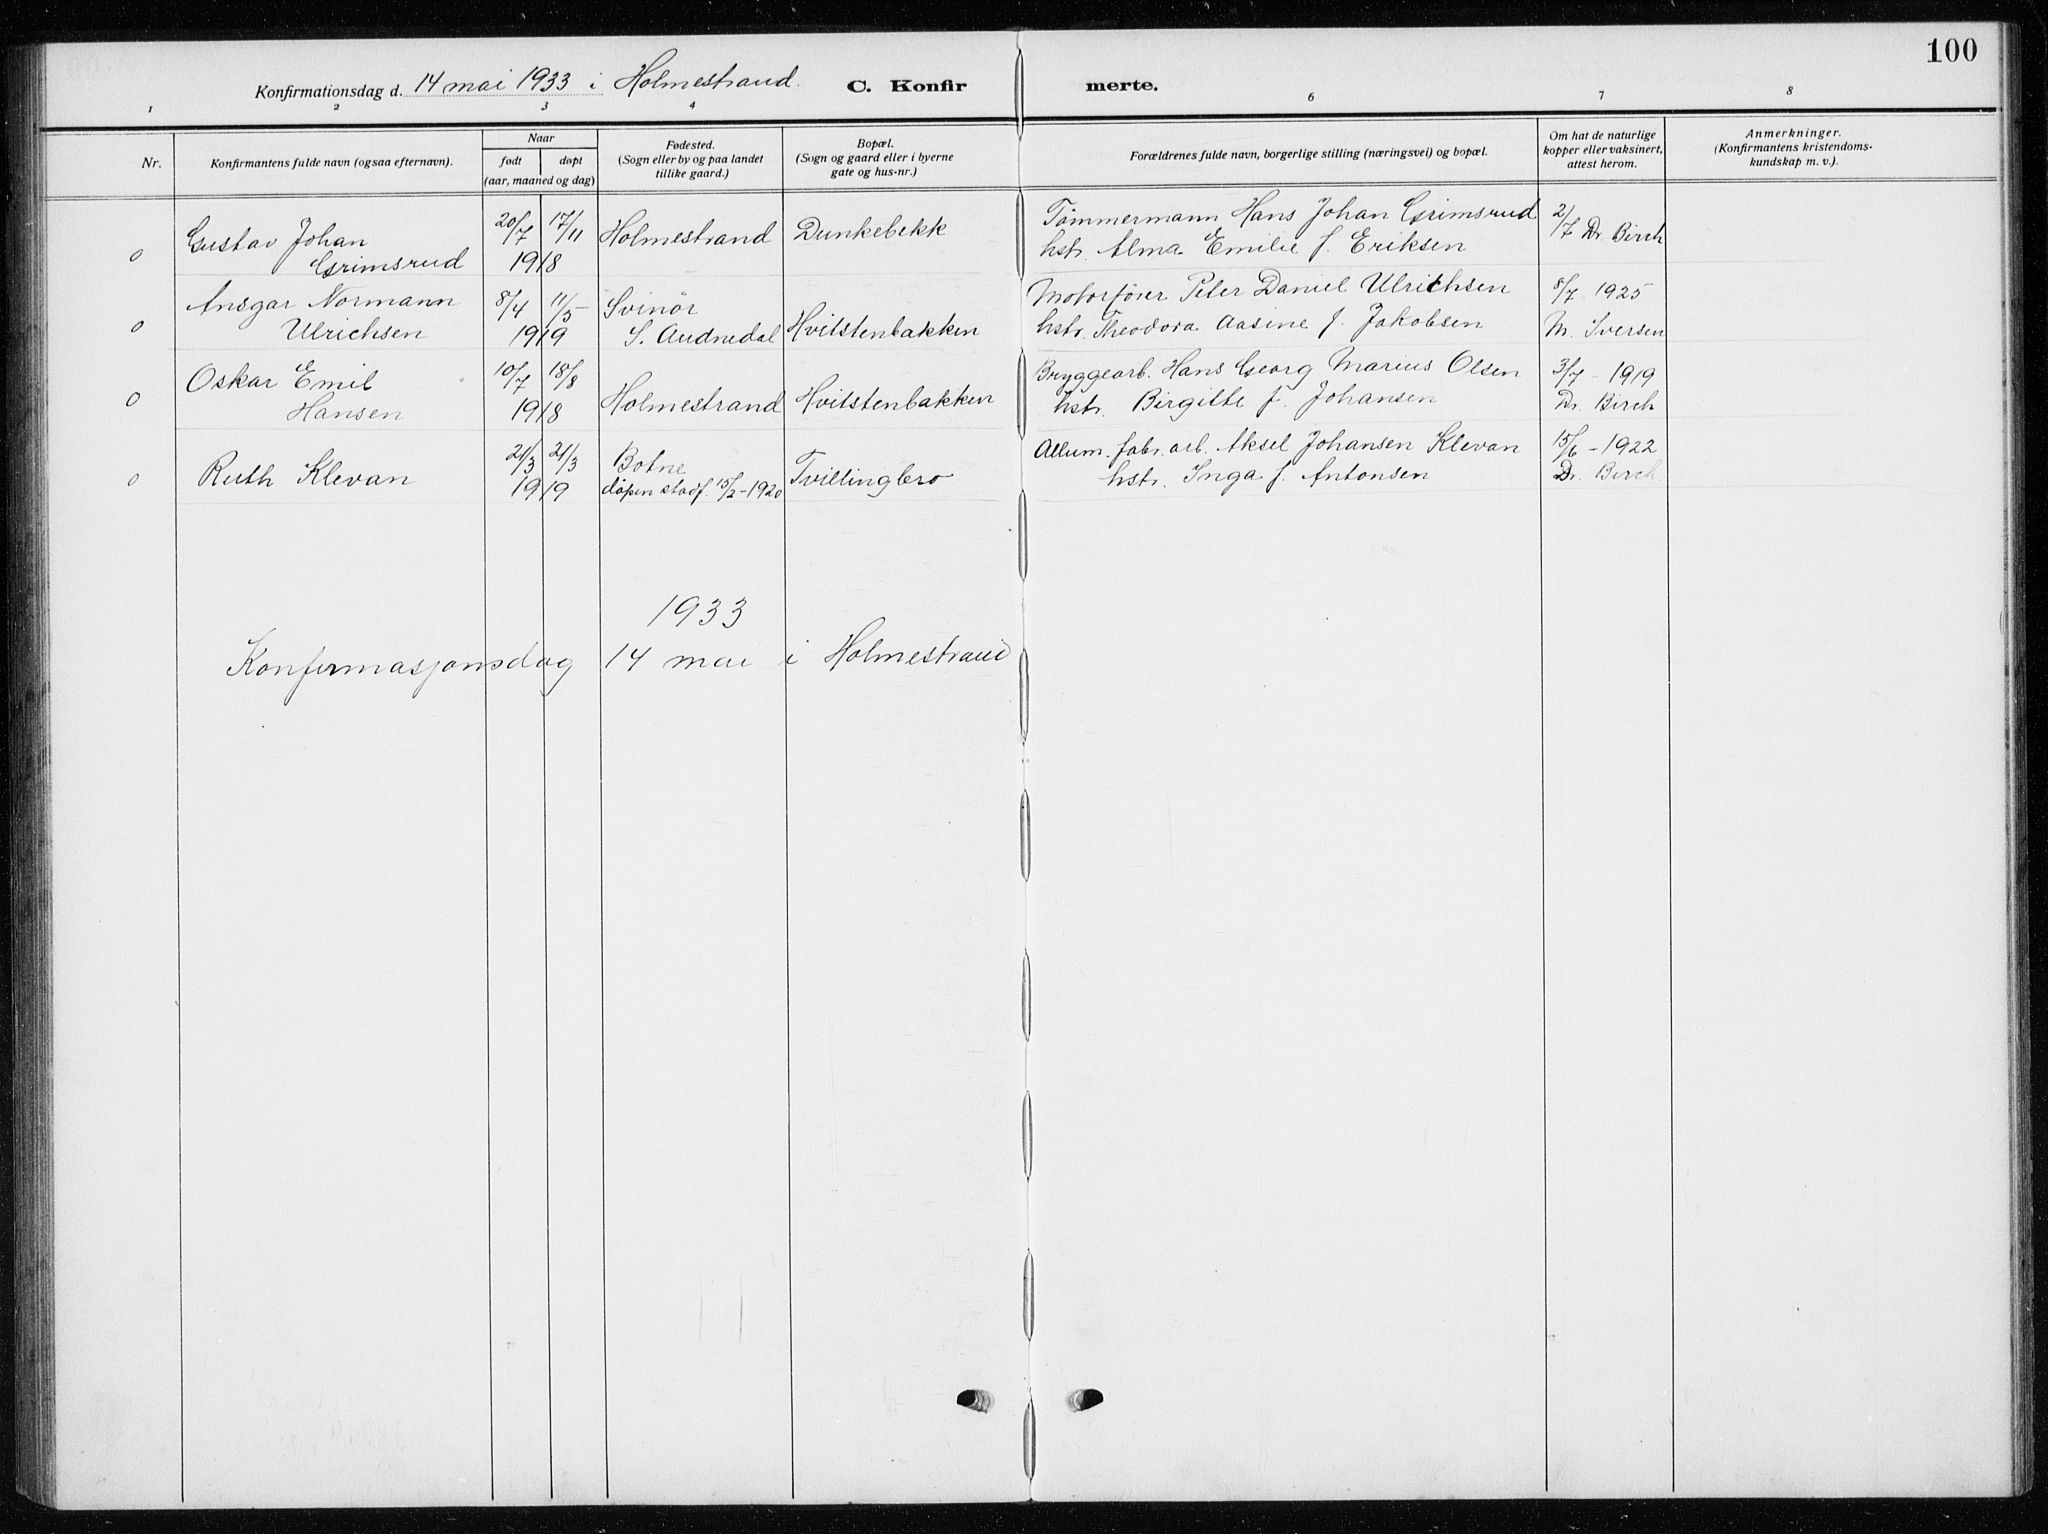 100
Konfirmationsdag d. 14 mai 1933 i Holmestrand. C. Konfir merte.
1 2 3 4 6 7 8
Nr.
Konfirmantens fulde navn (ogsaa efternavn).
Naar
født døpt
(aar, maaned og dag)
Fødested.
(Sogn eller by og paa landet
tillike gaard.)
Bopæl.
(Sogn og gaard eller i byerne
gate og hus-nr.)
Forældrenes fulde navn, borgerlige stilling (næringsvei) og bopæl.
Om hat de naturlige
kopper eller vaksinert,
attest herom.
Anmerkninger.
(Konfirmantens kristendoms-
kundskap m. v.)
0 Gustav Johan 20/7 17/11 Holmestrand Dunkebekk Tömmermann Hans Johan Grimsrud 2/7 Dr. Birch
Grimsrud 1918 hstr. Alma Emilie f. Eriksen
Ansgar Normann 8/4 11/5 Svinör Motorförer Peter Daniel Ulrichsen 8/7 1925
0 Ulrichsen 1919 S. Audnedal Hvitstenbakken hstr. Theodora Aasine f. Jakobsen M. Iversen
Oskar Emil 10/7 18/8 Bryggearb. Hans Georg Marius Olsen 3/7 - 1919
0 Hansen 1918 Holmestrand Hvitstenbakken hstr. Birgitte f. Johansen Dr. Birch
Ruth Klevan 21/3 21/3 Botne Tvillingbro Allum. fabr. arb. Aksel Johansen Klevan 15/6 - 1922
0 1919 döpen stadf. 15/2-1920 hstr. Inga f. Antonsen Dr. Birch
1933
Konfirmasjonsdag 14 mai i Holmestrand